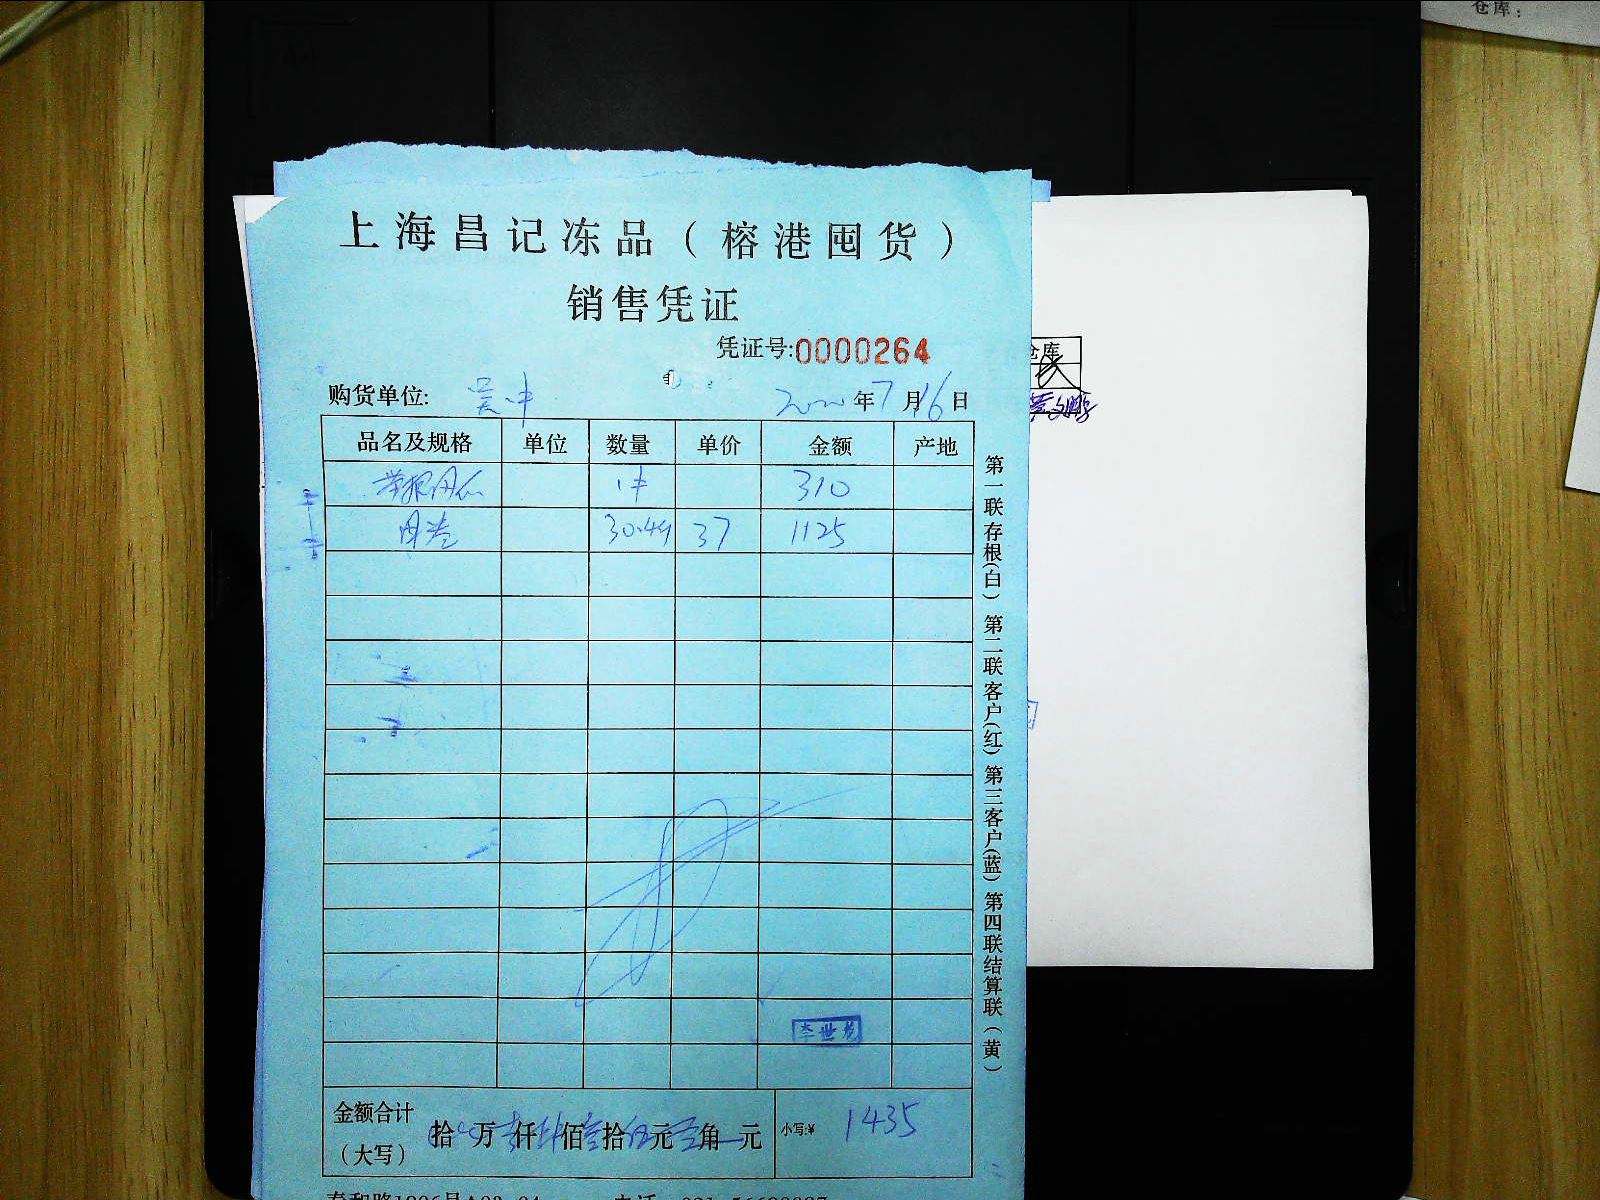 仓库：
上海昌记冻品（榕港囤货）
销售凭证
凭证号:0000264
仓库
购货单位: 吴中 2020年7月16日
品名及规格 单位 数量 单价 金额 产地
1件 310
30.44 37 1125
第一联存根(白) 第二联客户(红) 第三客户(蓝) 第四联结算联(黄)
李世龙
金额合计
（大写） 拾 万 仟 佰 拾 元 角 元 小写:¥ 1435